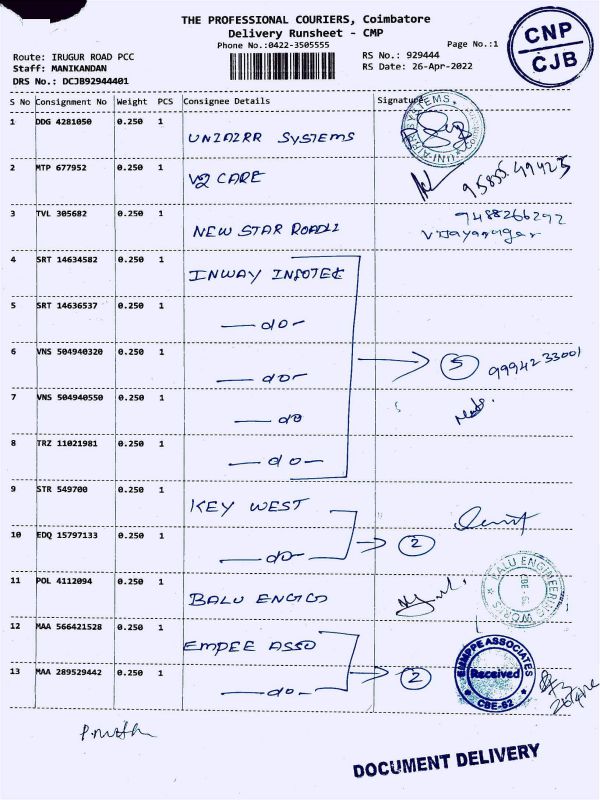 THE PROFESSIONAL COURIERS, Coimbatore
Delivery Runsheet - CMP
Phone No.:0422-3505555
Page No.:1
CNP
CJB
Route: IRUGUR ROAD PCC
Staff: MANIKANDAN
DRS No.: DCJB92944401
RS No.: 929444
RS Date: 26-Apr-2022
S No Consignment No Weight PCS Consignee Details Signature
1 DDG 4281050 0.250 1 UNIAIRR SYSTEMS
2 MTP 677952 0.250 1 V2 CARE
3 TVL 305682 0.250 1 NEW STAR 9488266292
4 SRT 14634582 0.250 1 INWAY INFOTEK
5 SRT 14636537 0.250 1 do
6 VNS 504940320 0.250 1 do 5 9994233001
7 VNS 504940550 0.250 1 do
8 TRZ 11021981 0.250 1 do
9 STR 549700 0.250 1 KEY WEST
10 EDQ 15797133 0.250 1 do 2
11 POL 4112094 0.250 1 BALU ENGG
BALU ENGINEERING WORKS CBE-62
12 MAA 566421528 0.250 1 EMPEE ASSO
13 MAA 289529442 0.250 1 do 2
EMMPPE ASSOCIATES
Received
CBE-62
DOCUMENT DELIVERY